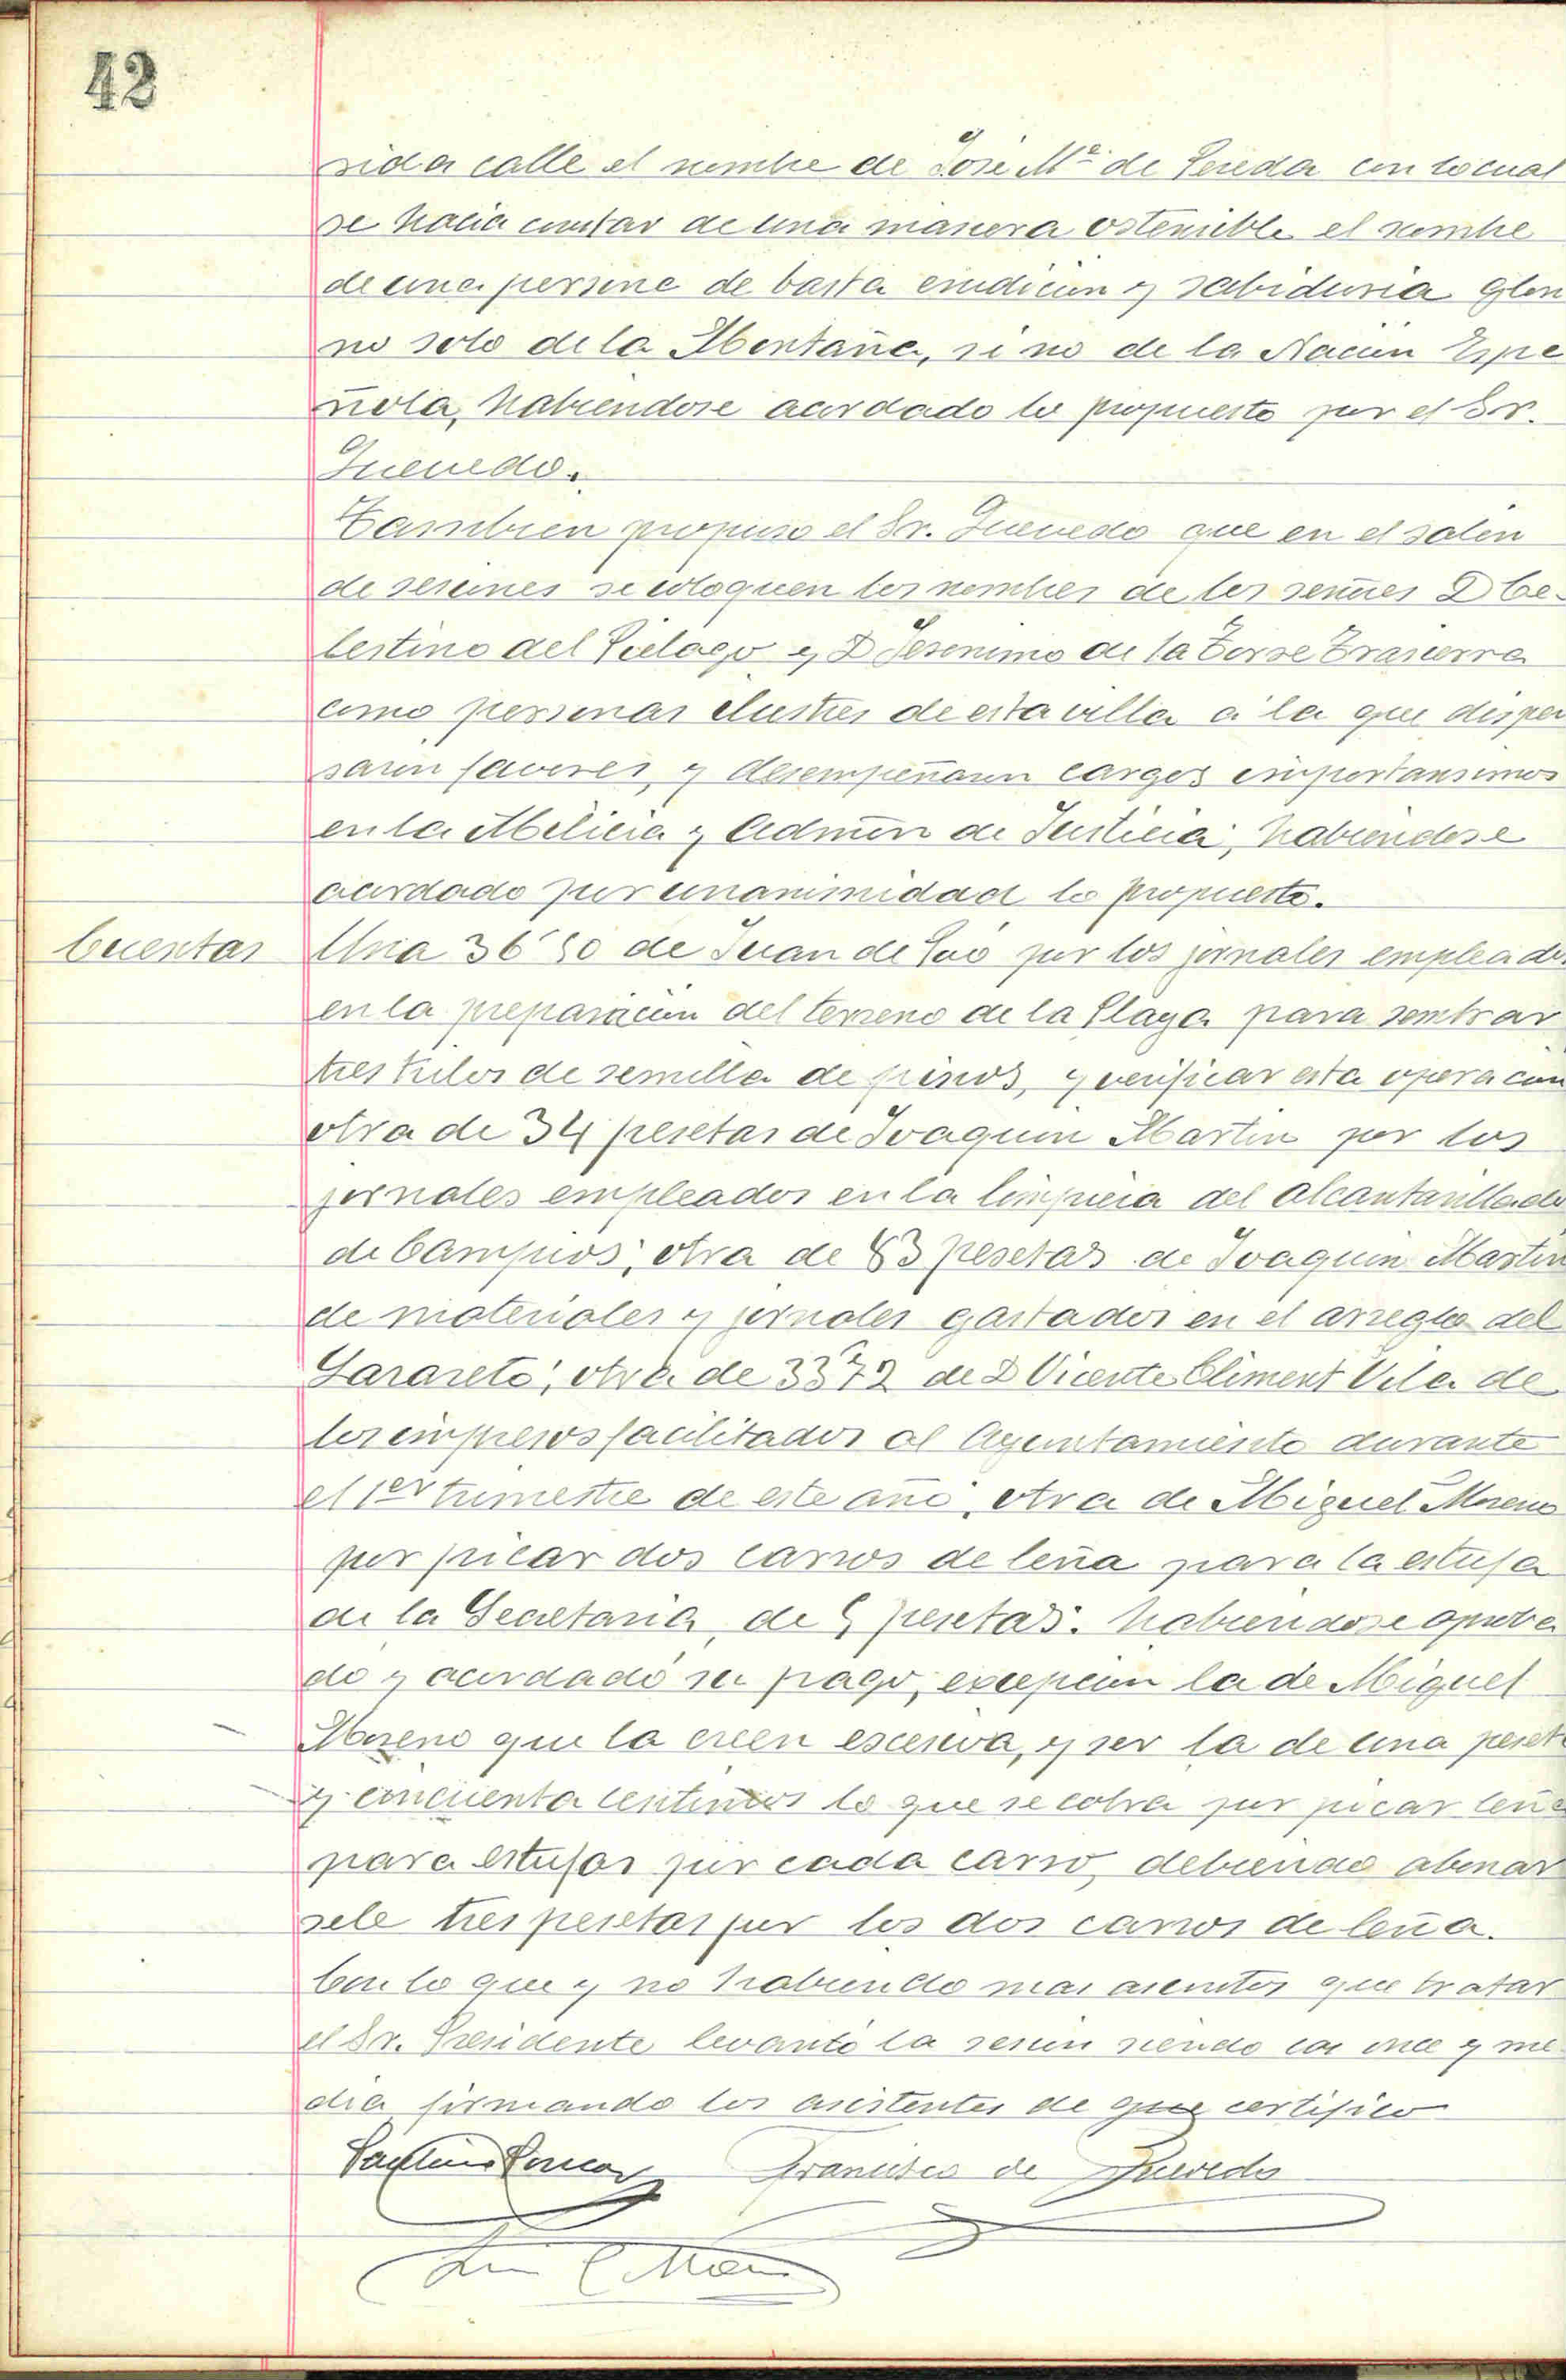 42
rida calle el nombre de José Mª de Pereda con lo cual
se hacia constar de una manera ostensible el nombre
de una persona de basta erudicion y sabiduria glori
no solo de la Montaña, si no de la Nacion Espa
ñola, habiendose acordado lo propuesto por el Sr.
Quevedo.
Tambien propuso el Sr. Quevedo que en el salon
de sesiones se coloquen los nombres de los señores D Ce-
lestino del Piélago y D Jeronimo de la Torre Trasierra
como personas ilustres de esta villa á la que dispen
saron favores, y desempeñaron cargos importansimos
en la Milicia y Admon de Justicia; habiendose
acordado por unanimidad lo propuesto.
Cuentas
Una 36'50 de Juan de Poó por los jornales empleados
en la preparacion del terreno de la Playa para sembrar
tres kilos de semilla de pinos, y verificar esta operacion
otra de 34 pesetas de Joaquin Martin por los
jornales empleados en la limpieza del alcantarillado
de Campios; otra de 83 pesetas de Joaquin Martin
de materiales y jornales gastados en el arreglo del
Lazareto; otra de 33'72 de D Vicente Climent Vila de
los impresos facilitados al Ayuntamiento durante
el 1er trimestre de este año, otra de Miguel Moreno
por picar dos carros de leña para la estufa
de la Secretaria, de 5 pesetas. habiendose aproba
do y acordado su pago, excepcion la de Miguel
Moreno que la creen escesiva, y ser la de una peseta
y cincuenta centimos lo que se cobra por picar leña
para estufas por cada carro, debiendo abonar
sele tres pesetas por los dos carros de leña.
Con lo que y no habiendo mas asuntos que tratar
el Sr. Presidente levantó la sesion siendo las once y me
dia firmando los asistentes de que certifico
Francisco de Quevedo